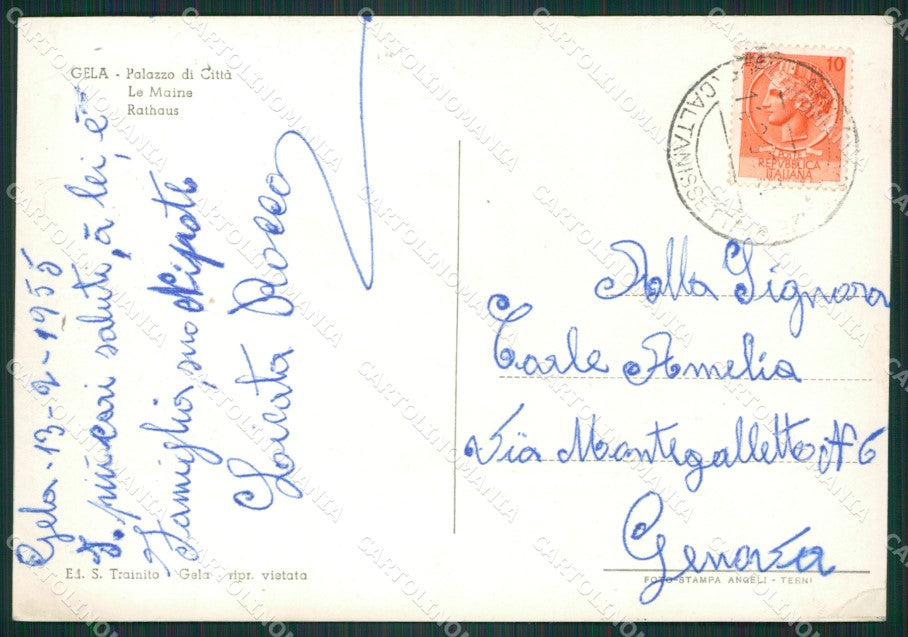 GELA - Palazzo di Città
Le Maine
Rathaus
Gela - 13-2-1955
I. più cari saluti, à lei, è
Famiglia, suo Nipote
Locicata Rocco
Ed. S. Trainito - Gela - ripr. vietata
10
POSTE
REPVBBLICA
ITALIANA
CALTANISSETTA
Alla Signora
Carle Amelia
Via Montegalletto N 6
Genova
FOTO-STAMPA ANGELI - TERNI
CARTOLINOMANIA